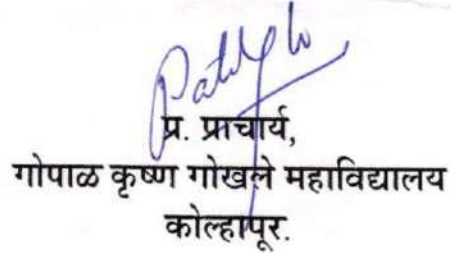 प्र. प्राचार्य,
गोपाळ कृष्ण गोखले महाविद्यालय
कोल्हापूर.